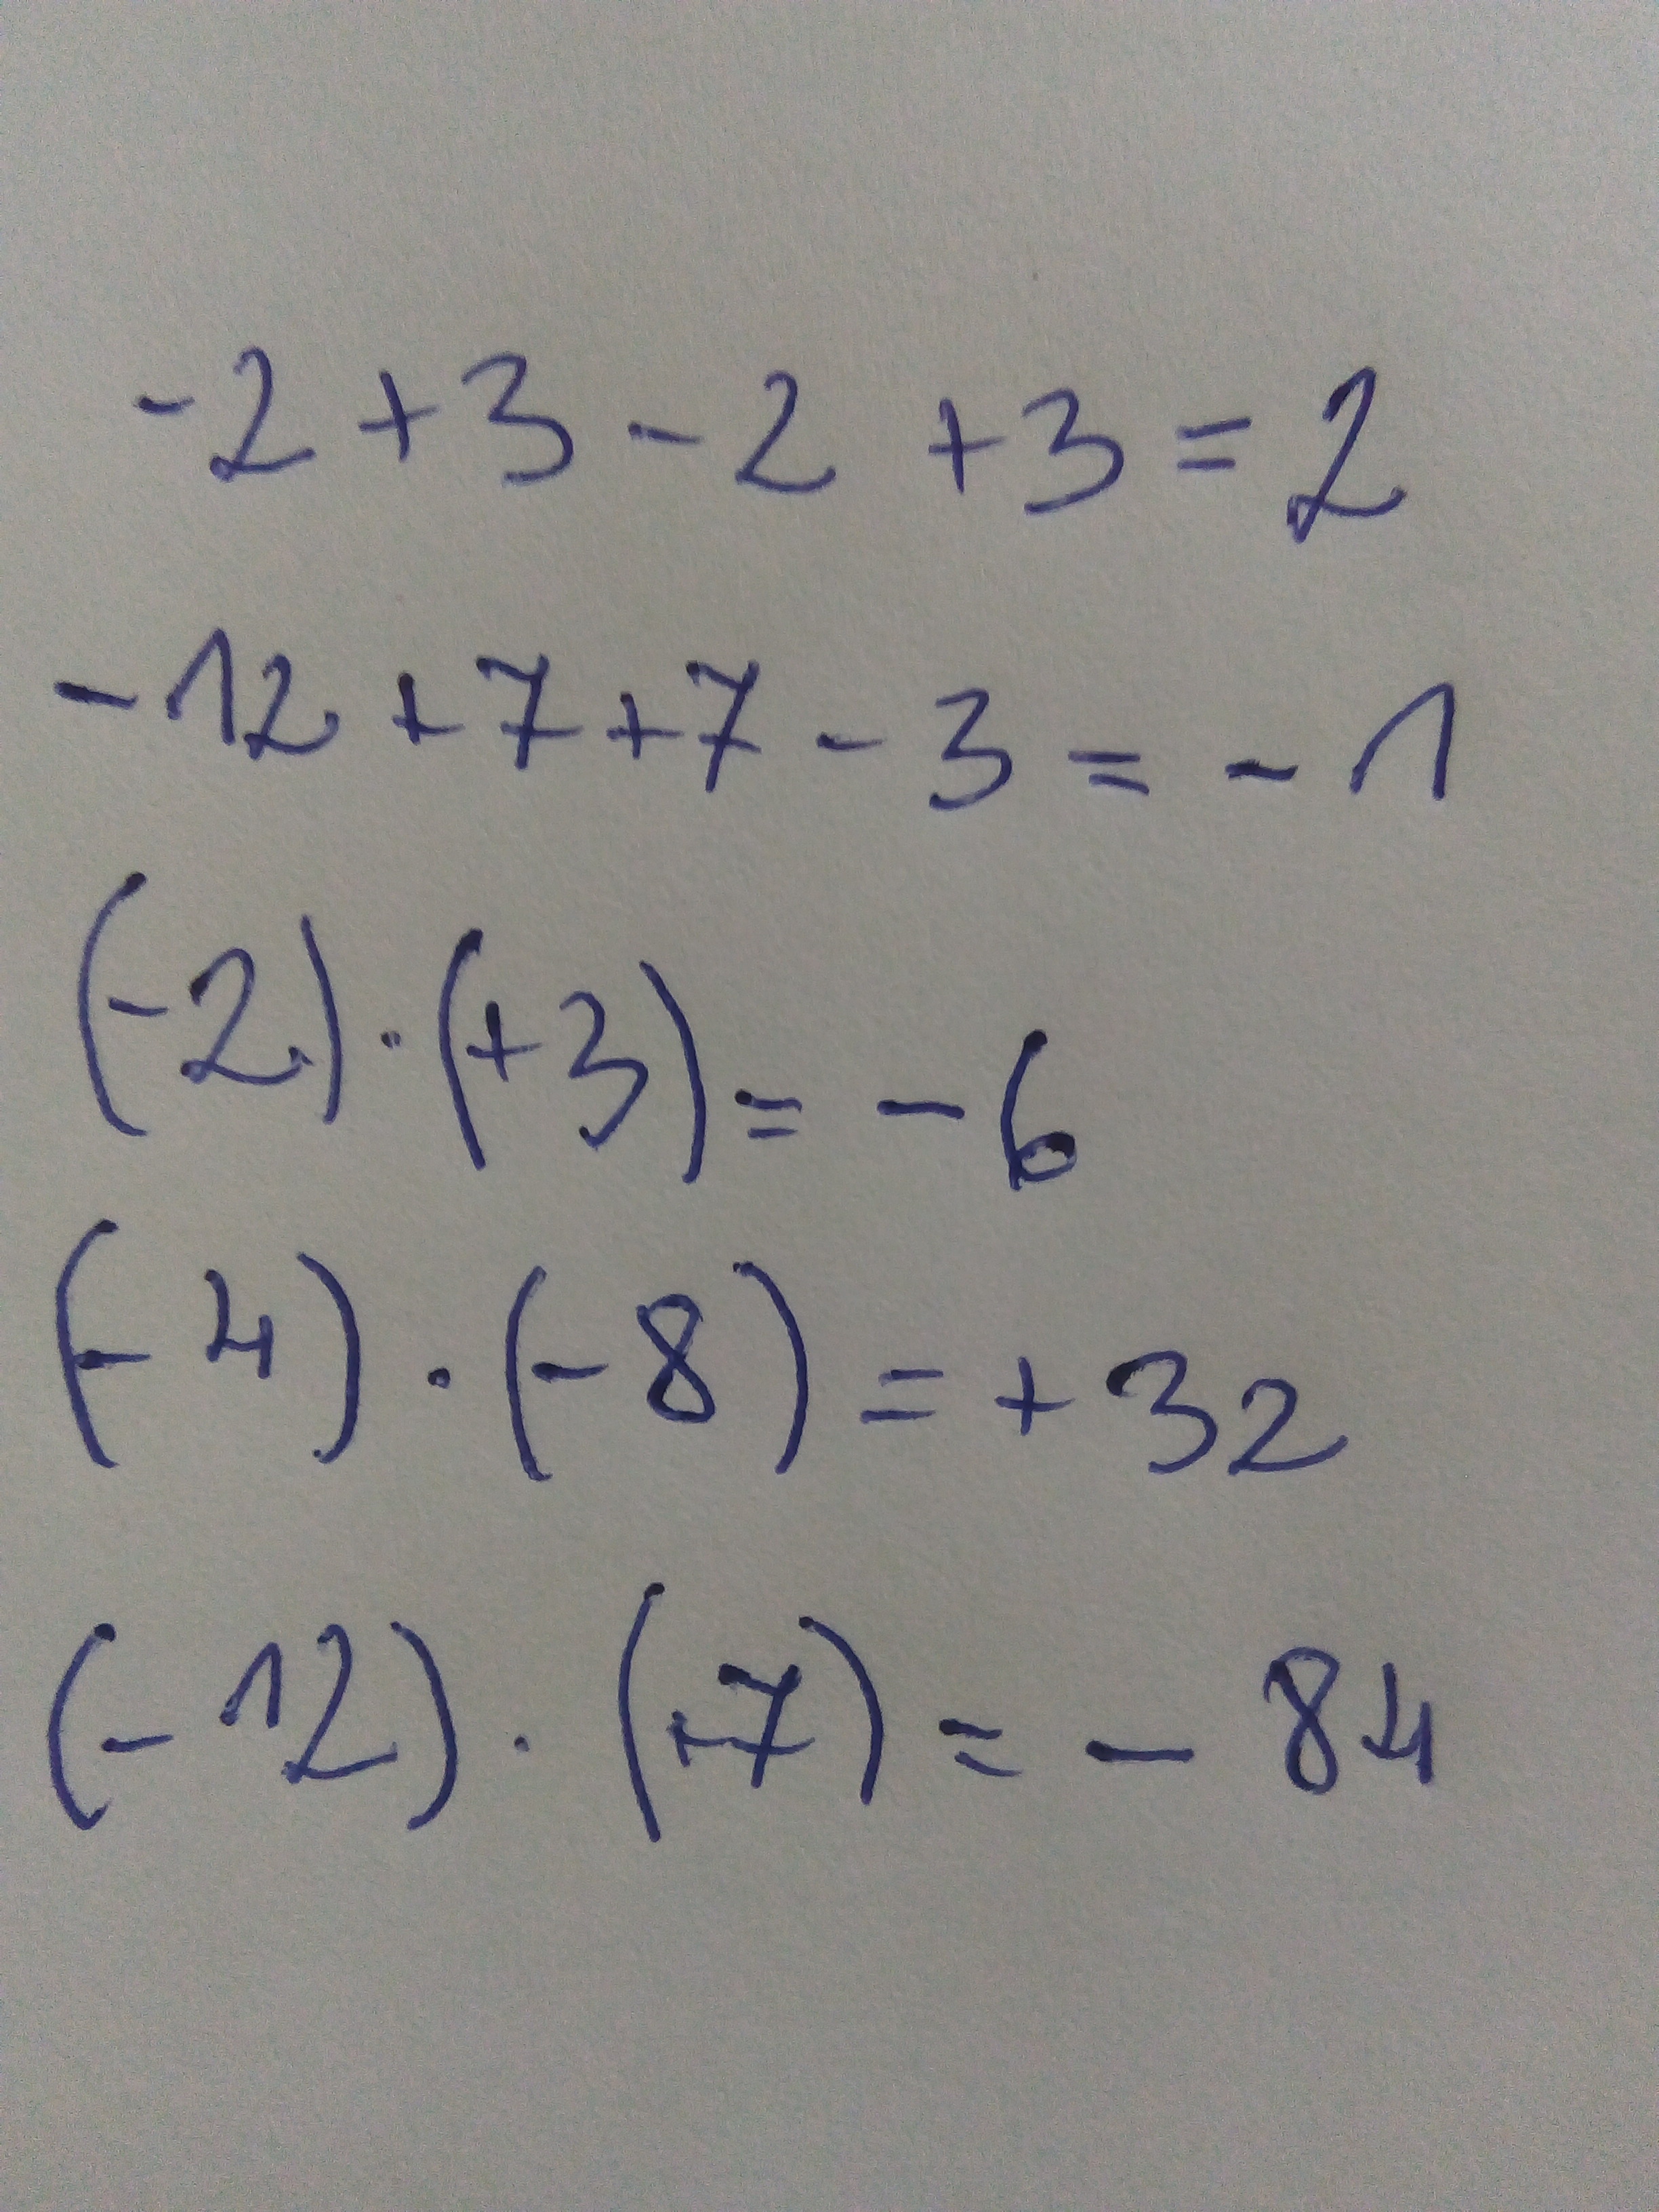 -2+3-2+3=2
-12+7+7-3=-1
(-2)·(+3)=-6
(-4)·(-8)=+32
(-12)·(+7)=-84